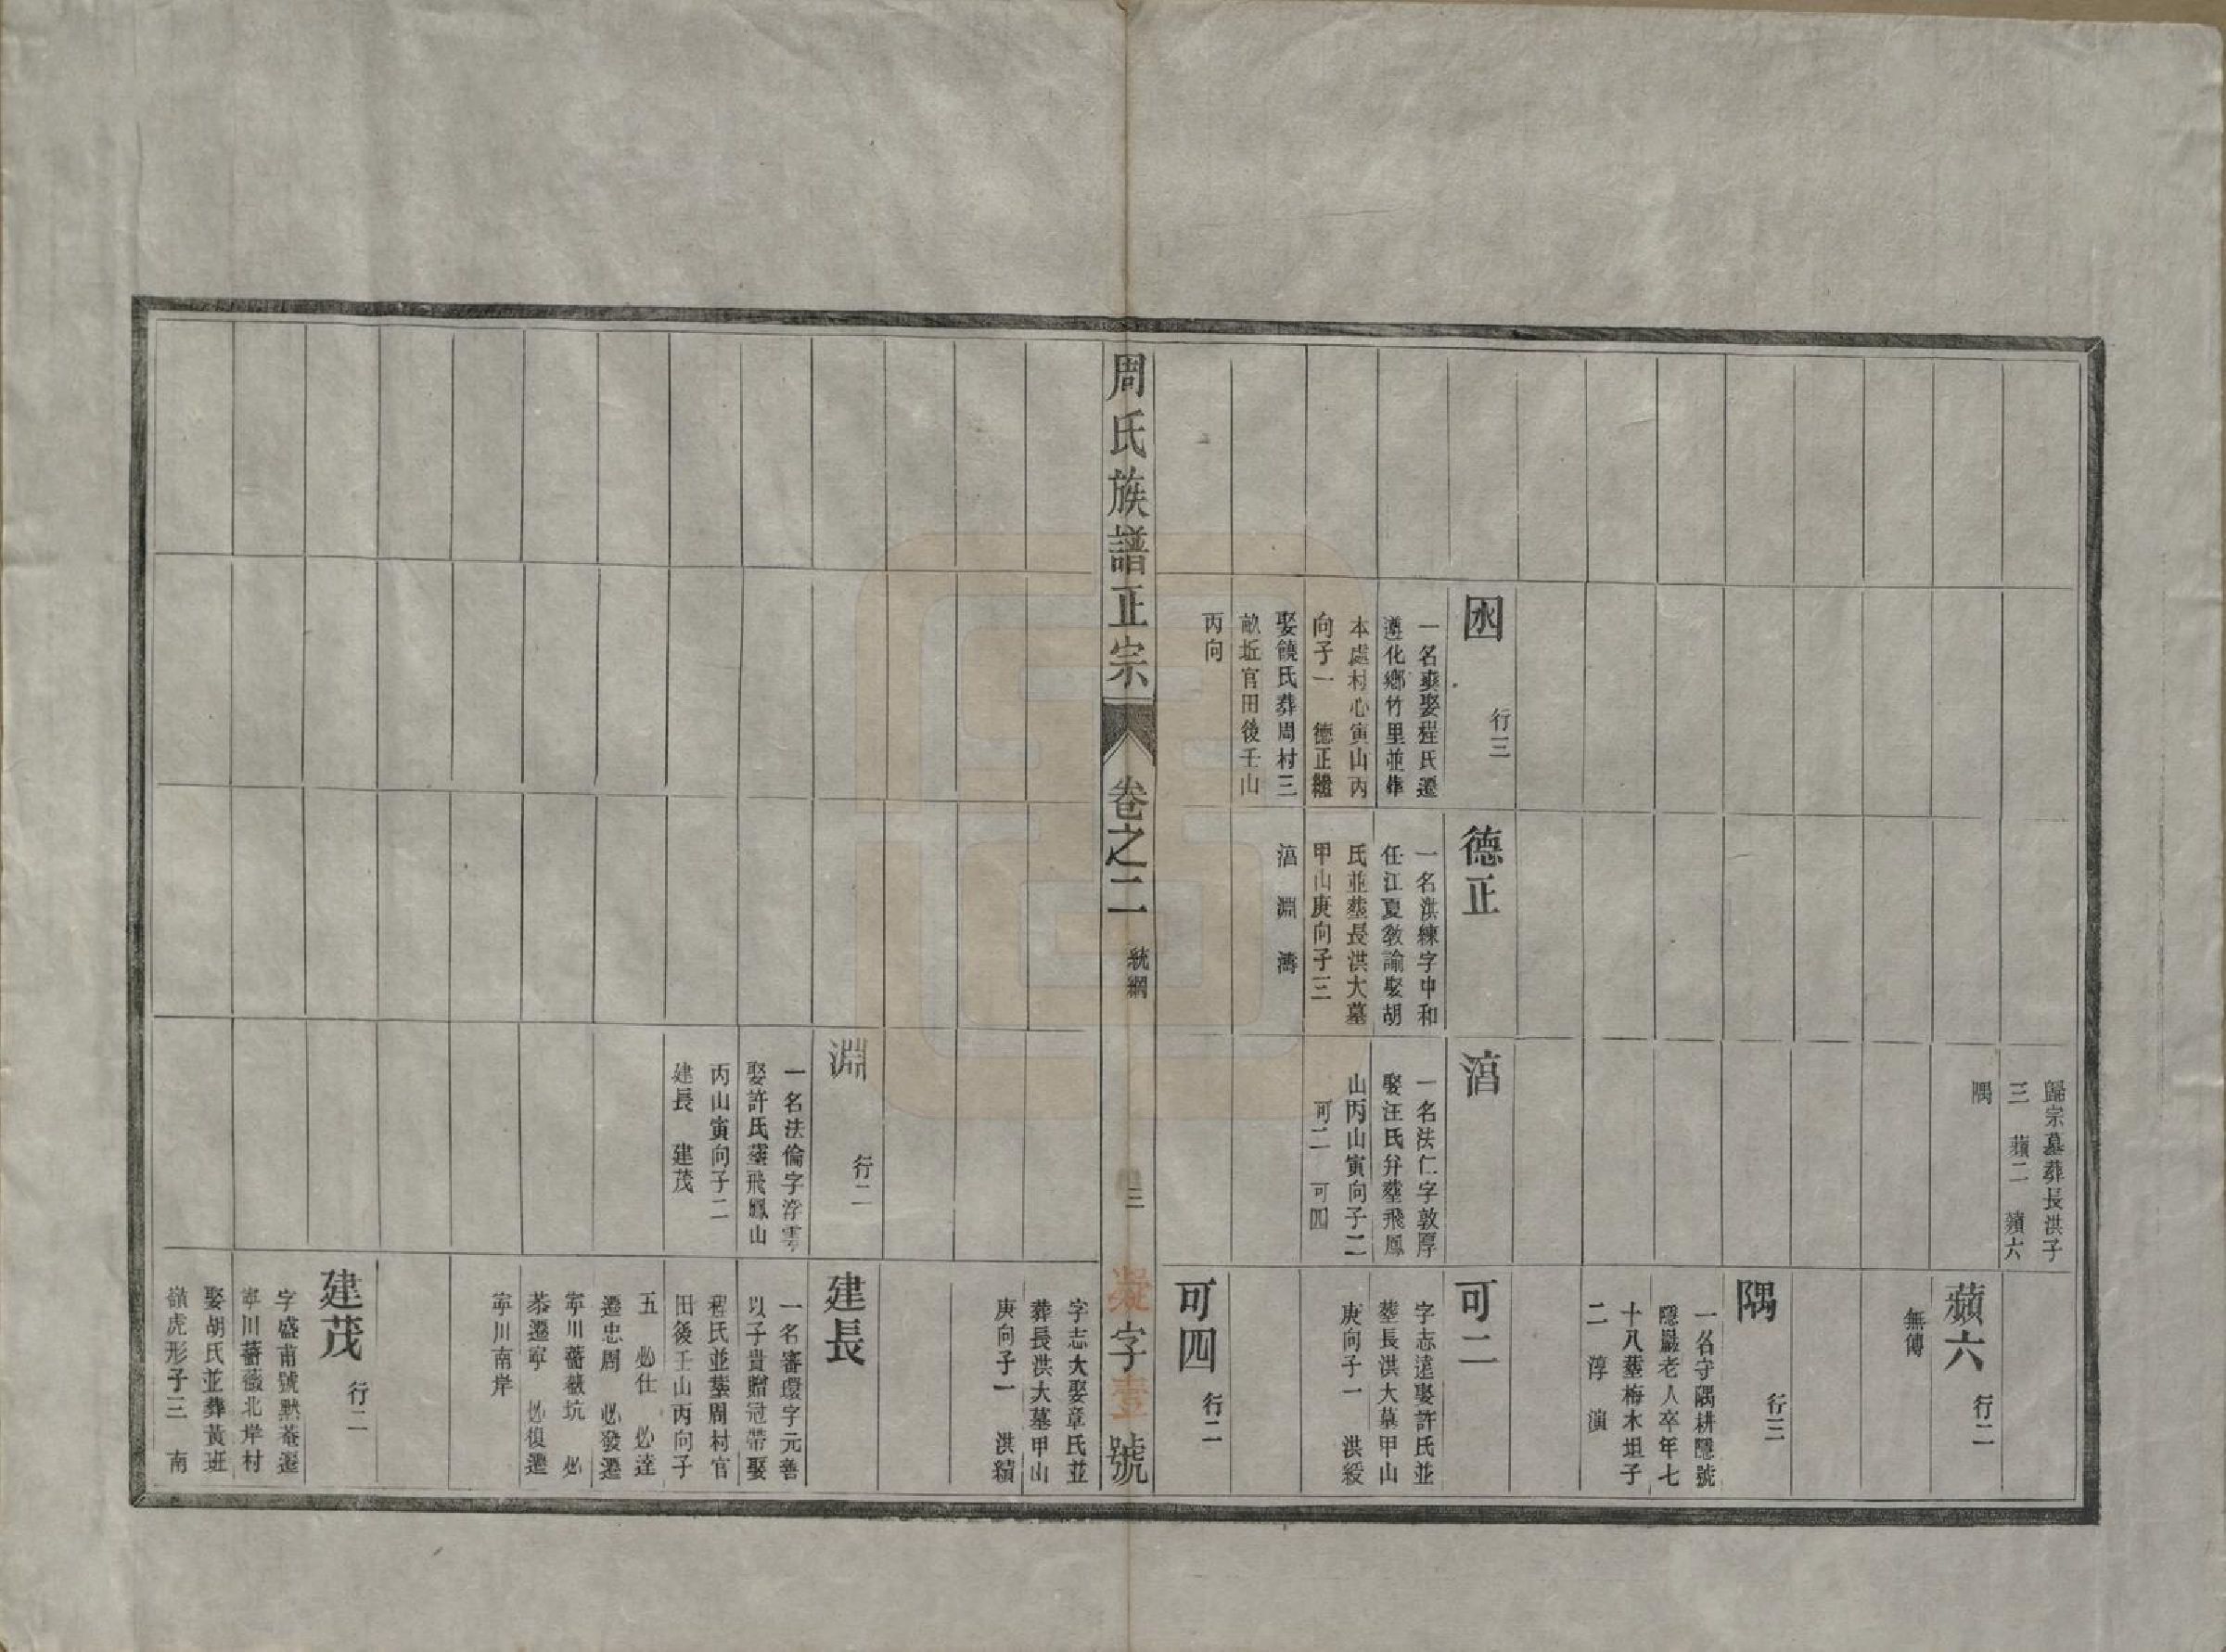 歸宗墓葬長洪子
三　蘋二　蘋六
隅
蘋六　行二
無傳
隅　行三
一名守隅耕隱號
隱巖老人卒年七
十八塟梅木坦子
二　淳　演
囦　行三
一名奭娶程氏遷
遵化鄉竹里並葬
本處村心寅山丙
向子一　德正繼
娶饒氏葬周村三
畝坵官田後壬山
丙向
德正
一名洪練字中和
任江夏教諭娶胡
氏並塟長洪大墓
甲山庚向子三
淯　淵　濤
淯
一名法仁字敦厚
娶汪氏弁塟飛鳳
山丙山寅向子二
可二　可四
可二
字志遠娶許氏並
塟長洪大墓甲山
庚向子一　洪綬
可四　行二
周氏族譜正宗
卷之二　統綱
三
凝字壹號
字志大娶章氏並
葬長洪大墓甲山
庚向子一　洪績
淵　行二
一名法倫字浮雲
娶許氏塟飛鳳山
丙山寅向子二
建長　建茂
建長
一名審環字元善
以子貴贈冠帶娶
程氏並塟周村官
田後壬山丙向子
五　必仕　必達
遷忠周　必發遷
寧川薔薇坑　必
恭遷寧　必復遷
寧川南岸
建茂　行二
字盛甫號默菴遷
寧川薔薇北岸村
娶胡氏並葬黃班
嶺虎形子三　南